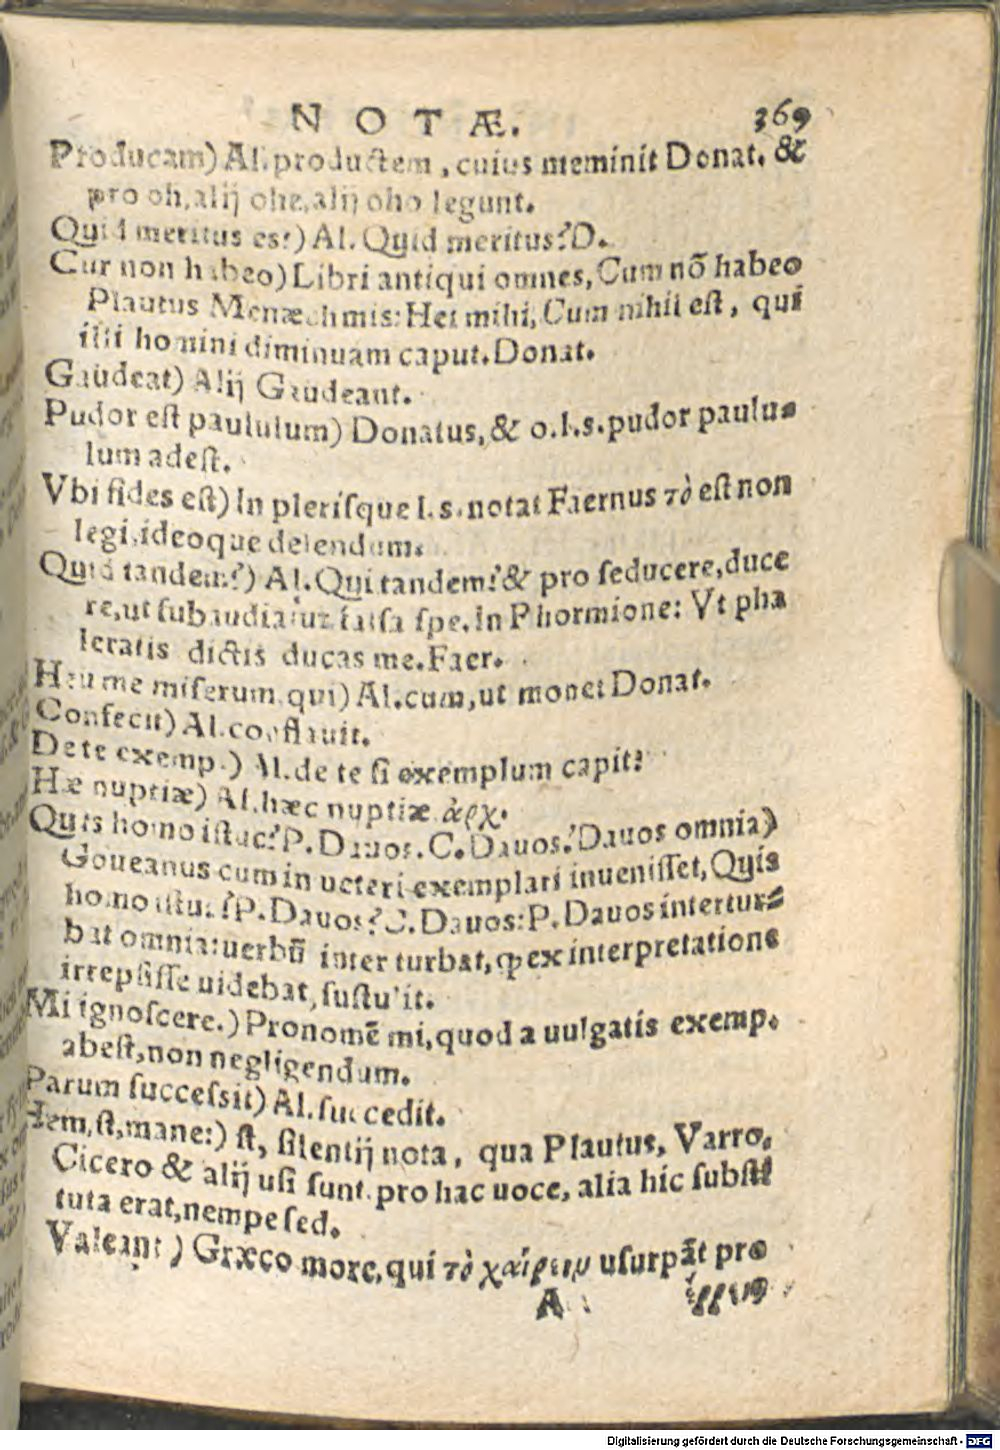 NOTÆ. 369
Producam) Al. productem, cuius meminit Donat. &
pro oh, alij ohe, alij oho legunt.
Quid meritus es?) Al. Quid meritus? D.
Cur non habeo) Libri antiqui omnes, Cum nõ habeo
Plautus Menæchmis: Hei mihi, Cum nihil eſt, qui
illi homini diminuam caput. Donat.
Gaudeat) Alij Gaudeant.
Pudor eſt paululum) Donatus, & o. l. s. pudor paulu-
lum adeſt.
Vbi fides eſt) In pleriſque l. s. notat Faernus τὸ eſt non
legi, ideoque delendum.
Quid tandem?) Al. Qui tandem? & pro ſeducere, duce
re, ut ſubaudiatur falſa ſpe. In Phormione: Vt pha
leratis dictis ducas me. Faer.
Heu me miſerum, qui) Al. cum, ut monet Donat.
Confecit) Al. conflauit.
De te exemp.) Al. de te ſi exemplum capit?
Hæ nuptiæ) Al. hæc nuptiæ ἀρχ.
Quis homo iſtuc? P. Dauos. C. Dauos? Dauos omnia)
Goueanus cum in ueteri exemplari inueniſſet, Quis
homo iſtuc? P. Dauos? C. Dauos: P. Dauos intertur-
bat omnia: uerbũ inter turbat, ꝙ ex interpretatione
irrepſiſſe uidebat, ſuſtulit.
Mi ignoſcere.) Pronomẽ mi, quod a uulgatis exemp.
abeſt, non negligendum.
Parum ſucceſsit) Al. ſuccedit.
Hem, ſt, mane:) ſt, ſilentij nota, qua Plautus, Varro,
Cicero & alij uſi ſunt. pro hac uoce, alia hic ſubſti
tuta erat, nempe ſed.
Valeant) Græco more, qui τὸ χαίρειν uſurpãt pro
A
Digitalisierung gefördert durch die Deutsche Forschungsgemeinschaft - DFG